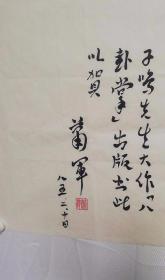 子鸣先生大作《八
卦掌》出版书此
以贺
萧军
八五、二、十日